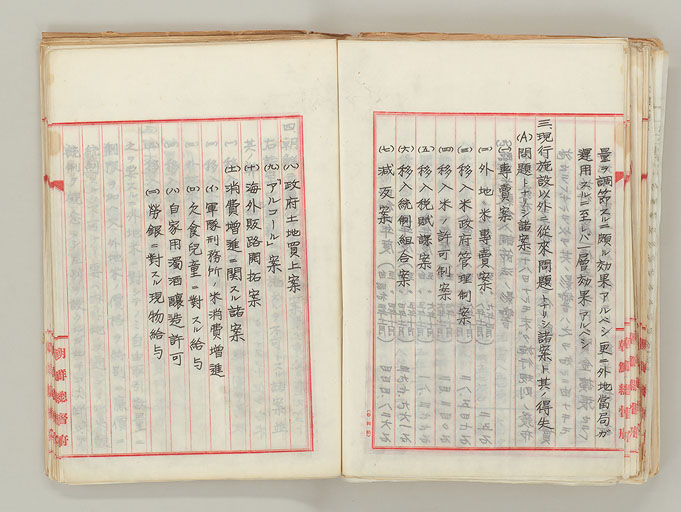 量ヲ調節スルニ頗ル効果アルベシ更ニ外地當局ガ
運用スルニ至レバ一層効果アルベシ
三、現行施設以外ニ從來問題トナリシ諸案ト其ノ得失
(A) 問題トナリシ諸案
(一) 專賣案
(二) 外地ノ米專賣案
(三) 移入米政府管理制案
(四) 移入米ノ許可制案
(五) 移入税賦課案
(六) 移入統制組合案
(七) 減反案
(八) 政府土地買上案
(九) 「アルコール」案
(十) 海外販路開拓案
(士) 消費增進ニ関スル諸案
(イ) 軍隊刑務所ノ米消費增進
(ロ) 欠食兒童ニ對スル給与
(ハ) 自家用濁酒釀造許可
(ニ) 勞銀ニ對スル現物給与
朝鮮總督府